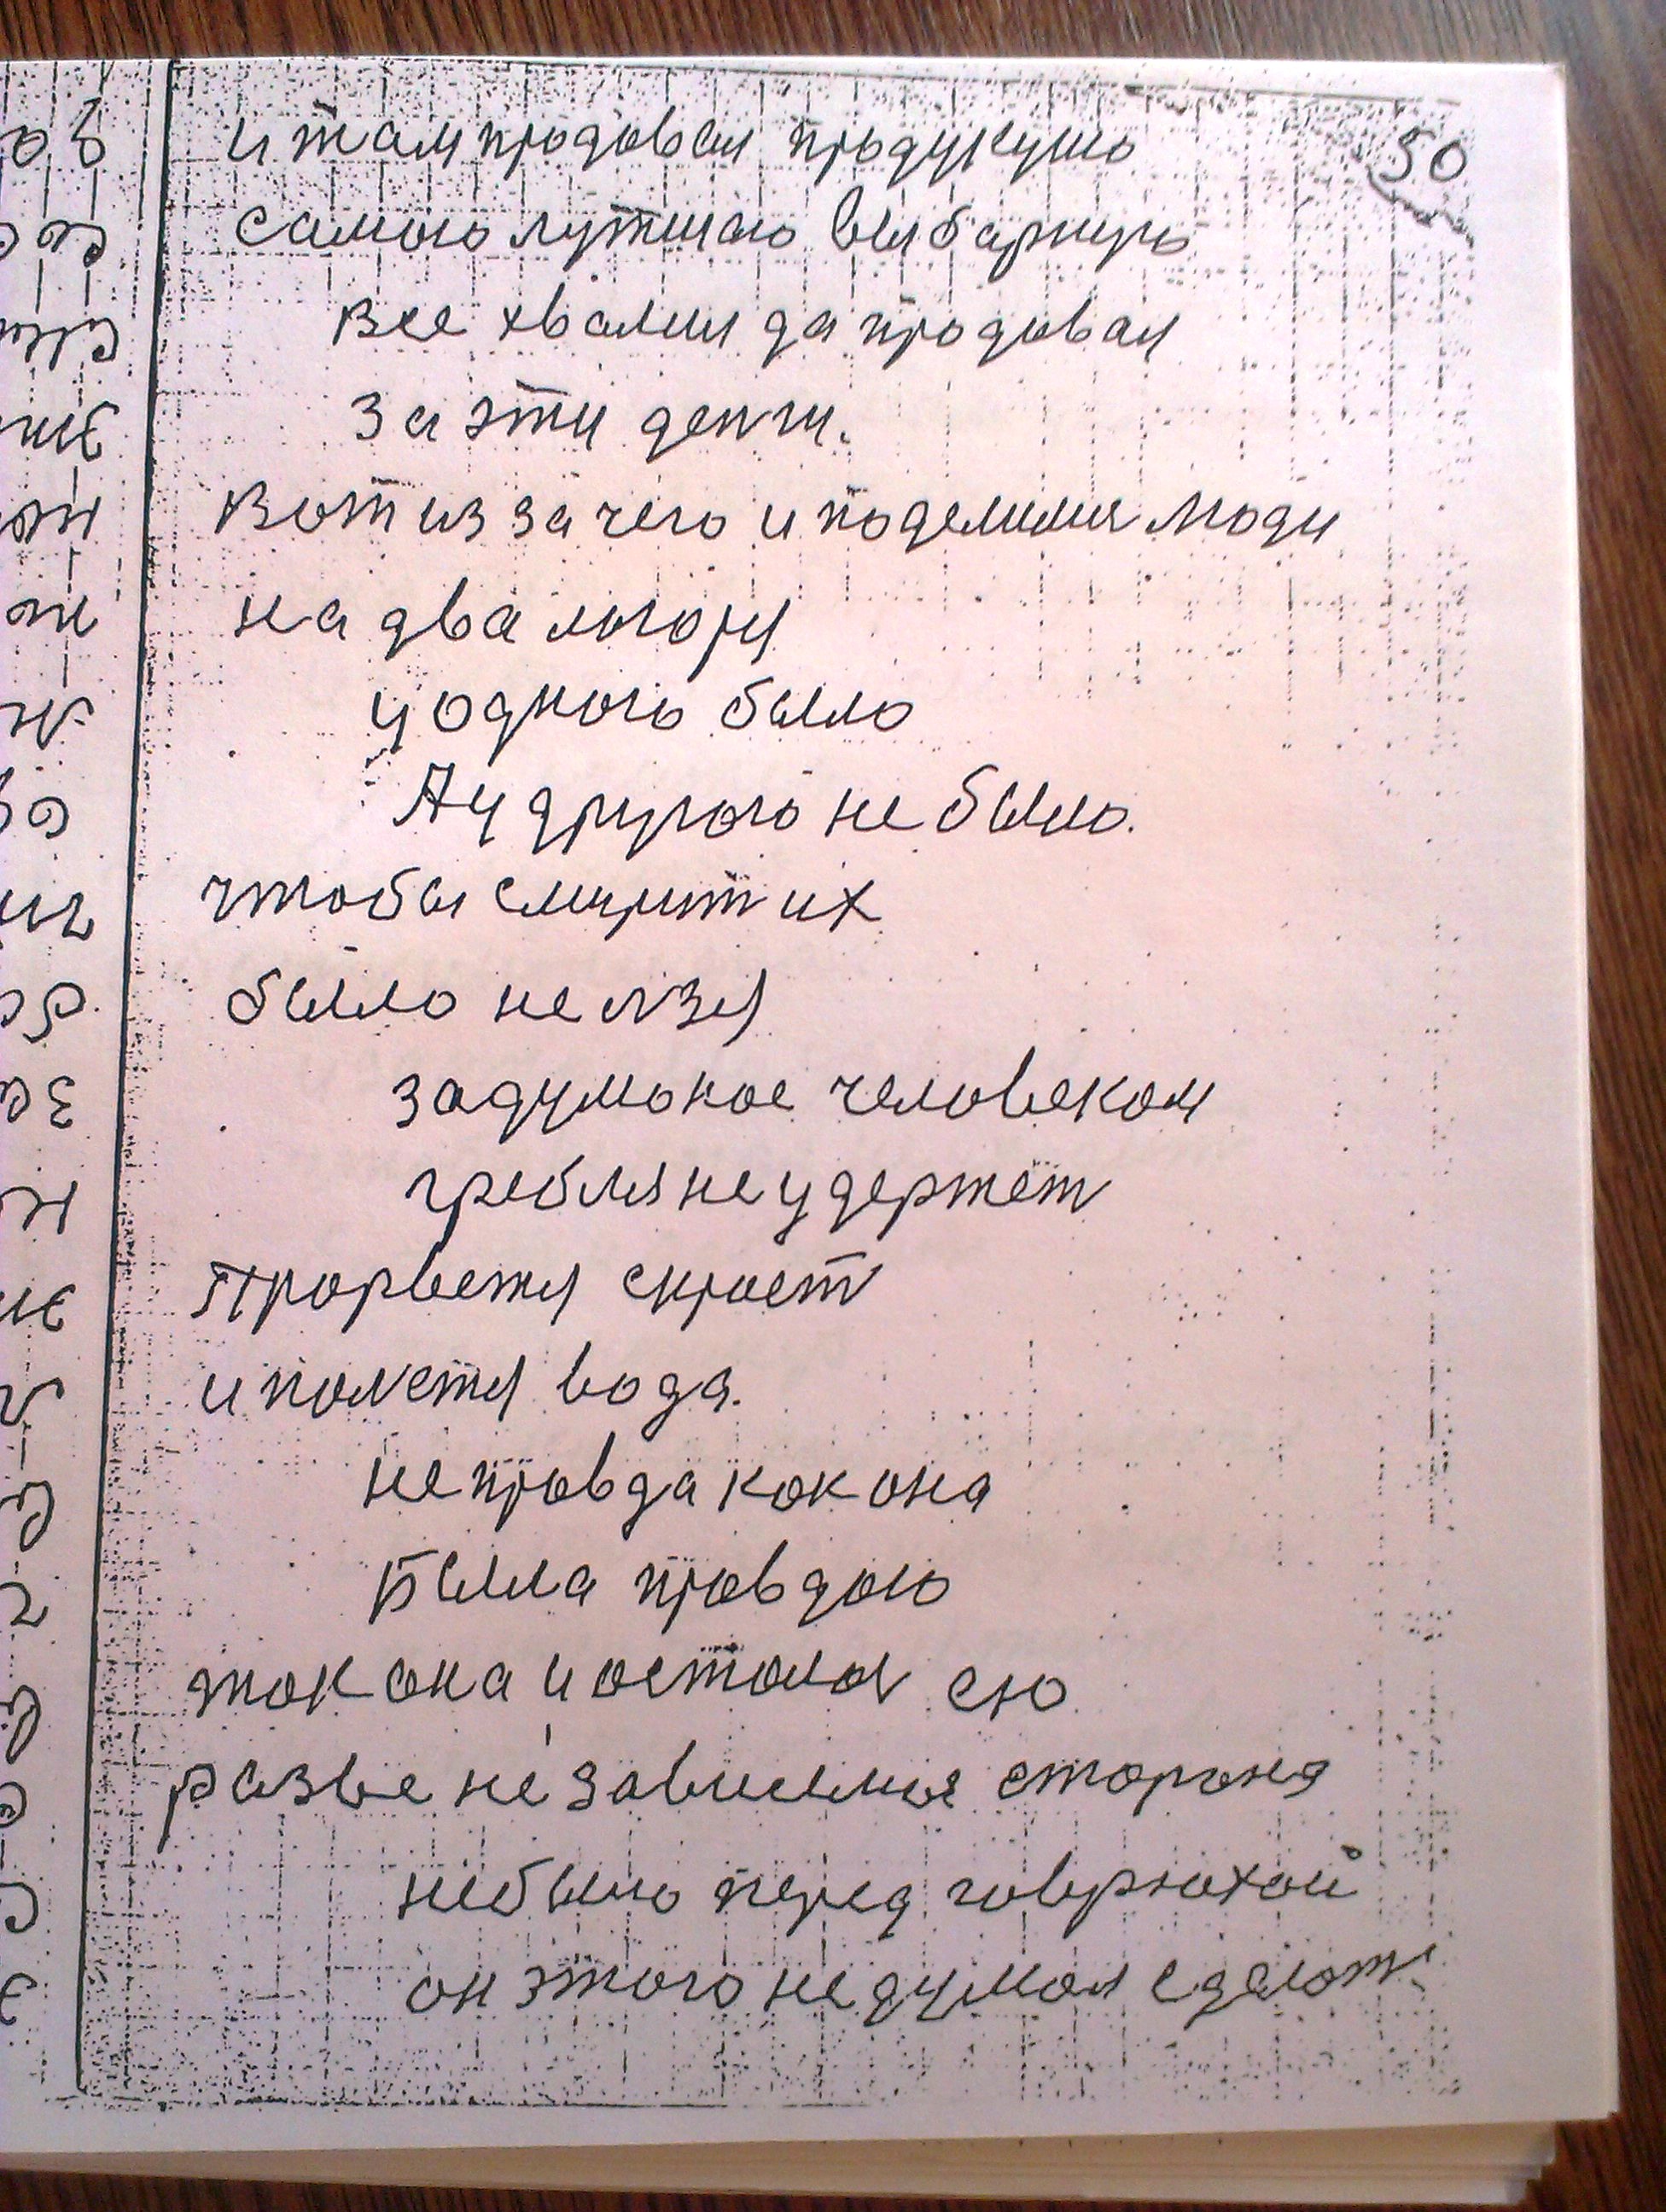 50
и там продовал продукцию
самого лутшаго выбарную
все хвалил да продовал
за эти денги.
Вот из за чего и поделились люди
на два логоря
у одного было
А у другого не было.
чтобы смирит их
было не лзя
задуманое человеком
гребля не удержет
прорветя скроет
и полетя вода.
не правда как она
Была правдою
так она и осталас ею
разве не зависимая старана
не было перед говрюхой
он этого не думал сделат